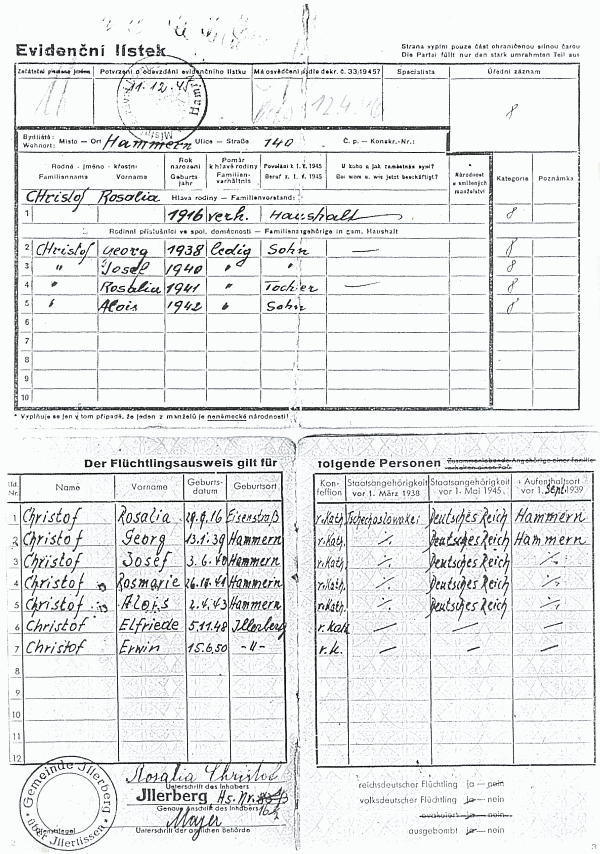 Evidenční lístek
Strana vyplní pouze část ohraničenou silnou čarou
Die Partei füllt nur den stark umrahmten Teil aus
Potvrzení o odevzdání evidenčního lístku
Má osvědčení podle dekr. č. 33/1945?
Specialista
Úřední záznam
11.12.45
8
Bydliště: Wohnort: Místo — Ort Hammern Ulice — Straße 140 Č. p. — Konskr.-Nr.:
Rodné - jméno - křestní Familienname Vorname
Rok narození Geburtsjahr
Poměr k hlavě rodiny Familienverhältnis
Povolání k 1. 1. 1945 Beruf z. 1. 1. 1945
U koho a jak zaměstnán nyní? Bei wem u. wie jetzt beschäftigt?
* Národnost u smíšených manželství
Kategorie
Poznámka
Christof Rosalia Hlava rodiny — Familienvorstand:
1 1916 verh. Haushalt 8
Rodinní příslušníci ve spol. domácnosti — Familienangehörige in gem. Haushalt
2 Christof Georg 1938 ledig Sohn — 8
3 " Josef 1940 " " 8
4 " Rosalia 1941 " Tochter — 8
5 " Alois 1942 " Sohn 8
6
7
8
9
10
* Vyplňuje se jen v tom případě, že jeden z manželů je neněmecké národnosti!
Der Flüchtlingsausweis gilt für folgende Personen
Lfd. Nr. Name Vorname Geburtsdatum Geburtsort Konfession Staatsangehörigkeit vor 1. März 1938 Staatsangehörigkeit vor 1. Mai 1945 Aufenthaltsort vor 1. Sept. 1939
1 Christof Rosalia 29.9.16 Eisenstraß r.Kath. Tschechoslowakei Deutsches Reich Hammern
2 Christof Georg 13.1.39 Hammern r.Kath. ٪ Deutsches Reich Hammern
3 Christof Josef 3.6.40 Hammern r.Kath. ٪ Deutsches Reich ٪
4 Christof Rosmarie 26.10.41 Hammern r.Kath. ٪ Deutsches Reich ٪
5 Christof Alois 2.4.43 Hammern r.Kath. ٪ Deutsches Reich ٪
6 Christof Elfriede 5.11.48 Jllerberg r.Kath — — —
7 Christof Erwin 15.6.50 -"- r.K. — — —
8
9
10
11
12
Gemeinde Jllerberg über Jllertissen
Rosalia Christof
Unterschrift des Inhabers
Jllerberg Hs. Nr.
Genaue Anschrift des Inhabers
Mayer
Unterschrift der amtlichen Behörde
reichsdeutscher Flüchtling ja — nein
volksdeutscher Flüchtling ja — nein
evakuiert ja — nein
ausgebombt ja — nein
3